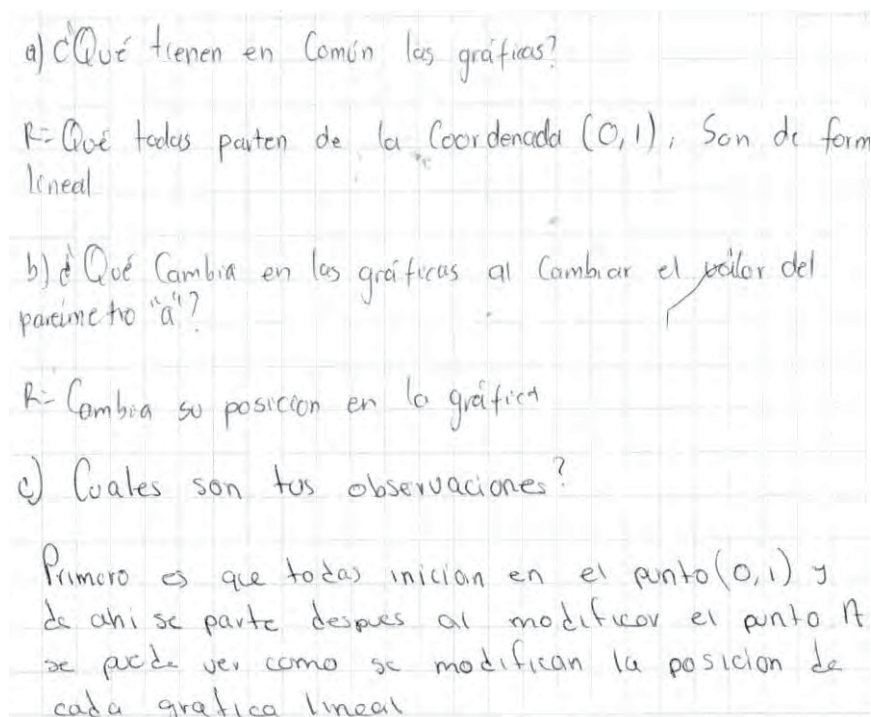 a) ¿Qué tienen en Común las gráficas?
R= Qué todas parten de la Coordenada (0,1), Son de form
lineal
b) ¿Qué Cambia en las gráficas al Cambiar el valor del
parámetro "a"?
R= Cambia su posicion en la gráfica
c) Cuales son tus observaciones?
Primero es que todas inician en el punto (0,1) y
de ahi se parte despues al modificar el punto A
se puede ver como se modifican la posicion de
cada grafica lineal